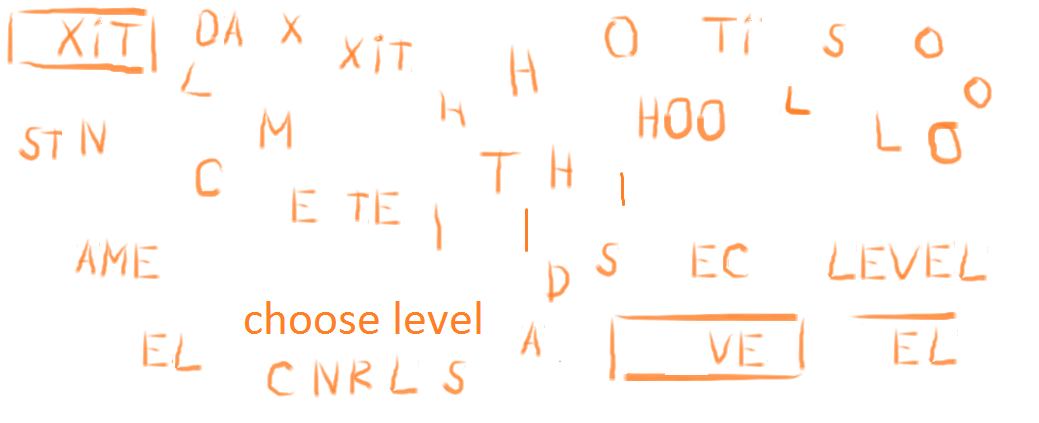 XiT DA X XiT H O Ti S O
L H L O
ST N M HOO L O
C T H I
E TE I I
AME D S EC LEVEL
choose level
EL A VE EL
C NR L S